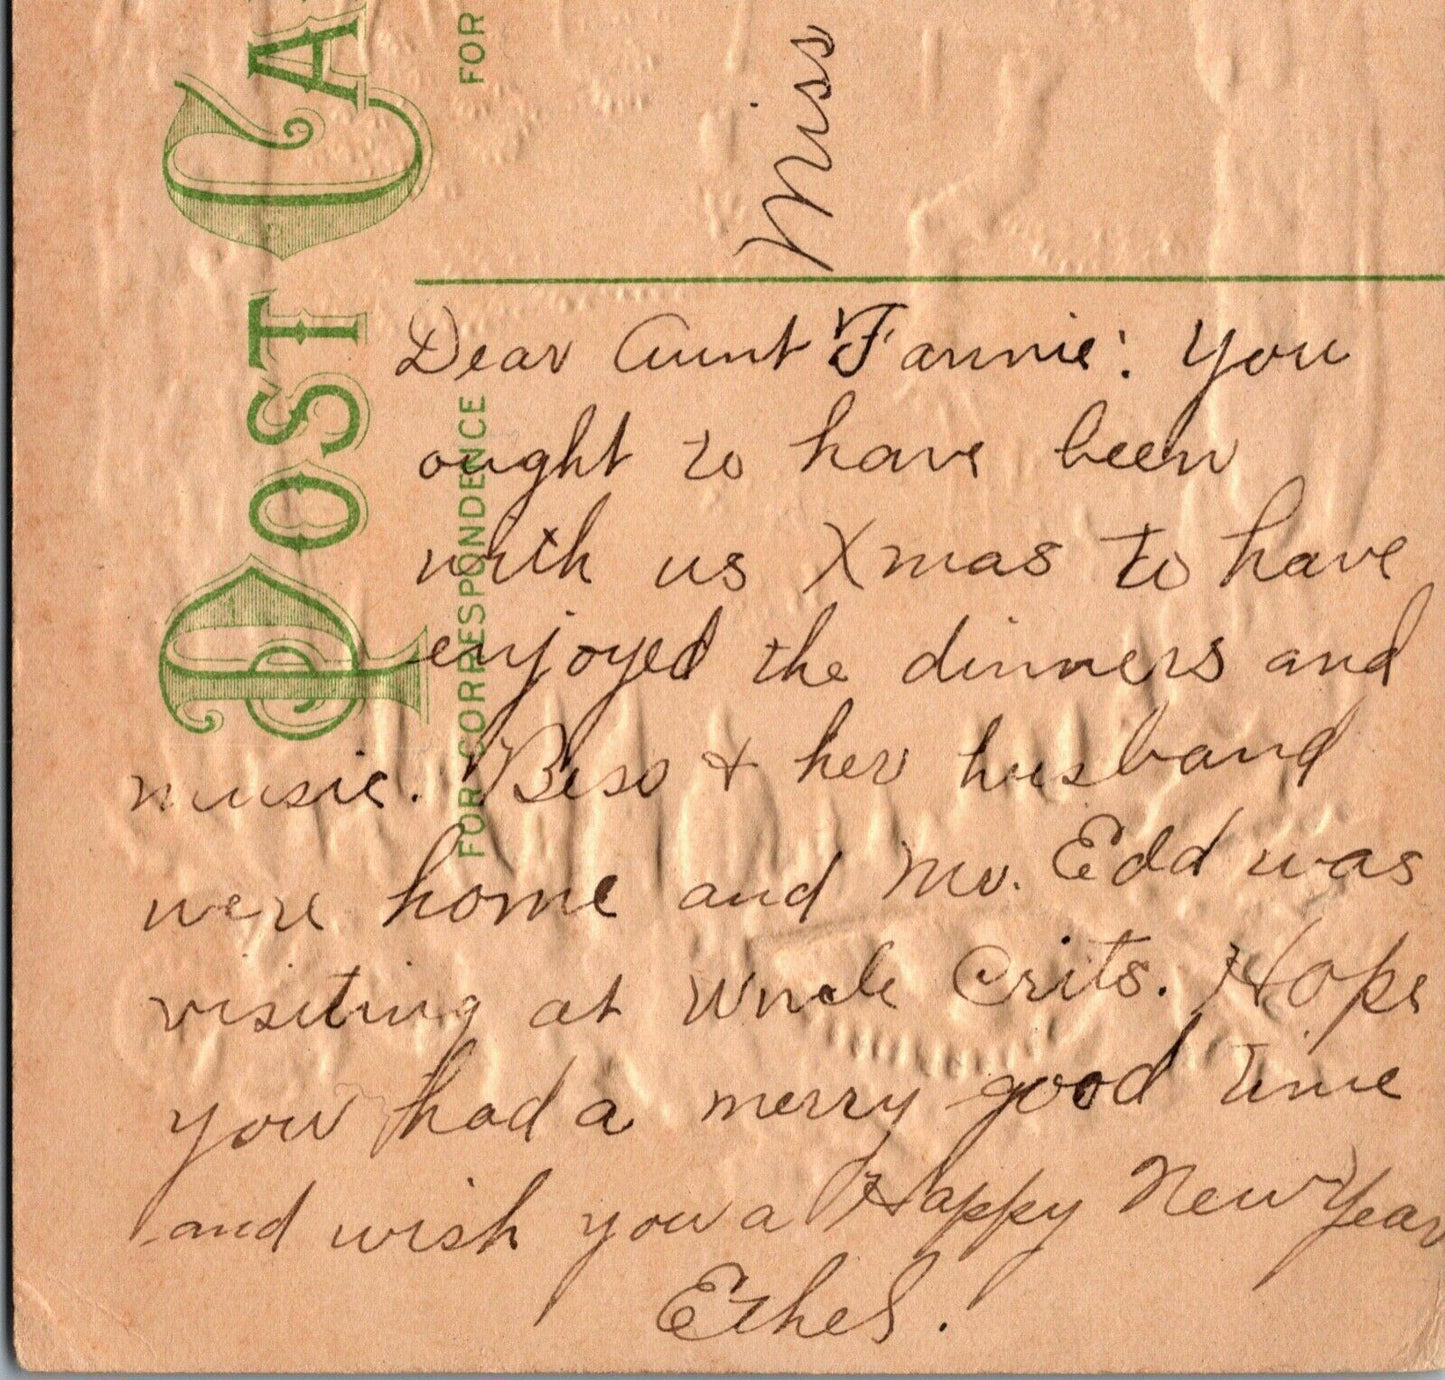 POST CA
FOR CORRESPONDENCE
FOR
Miss
Dear Aunt Fannie: You
ought to have been
with us Xmas to have
enjoyed the dinners and
music. Bess + her husband
were home and Mr. Edd was
visiting at Uncle Crits. Hope
you had a merry good time
and wish you a Happy New Year
Ethel.